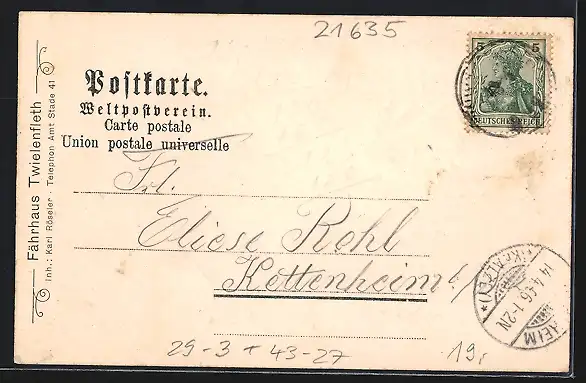 21635
5 5
DEUTSCHES REICH
Postkarte.
Weltpostverein.
Carte postale
Union postale universelle
Fährhaus Twielenfleth
Inh.: Karl Röseler · Telephon Amt Stade 41
Frl.
Eliese Kohl
Kettenheim
14.4.06.1-2N
29-3+43-27
19,